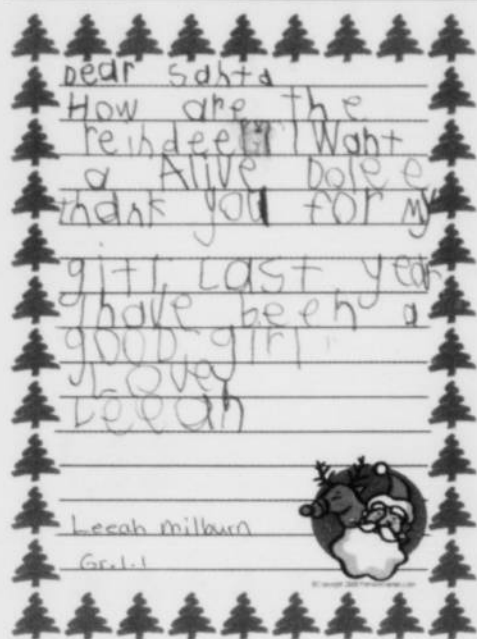 Dear Santa
How are the
reindeer I Want
a Alive Dolee
thank you for my
gift Last year
I have been a
good girl
Love
Leeah
Leeah milburn
Gr.1.1